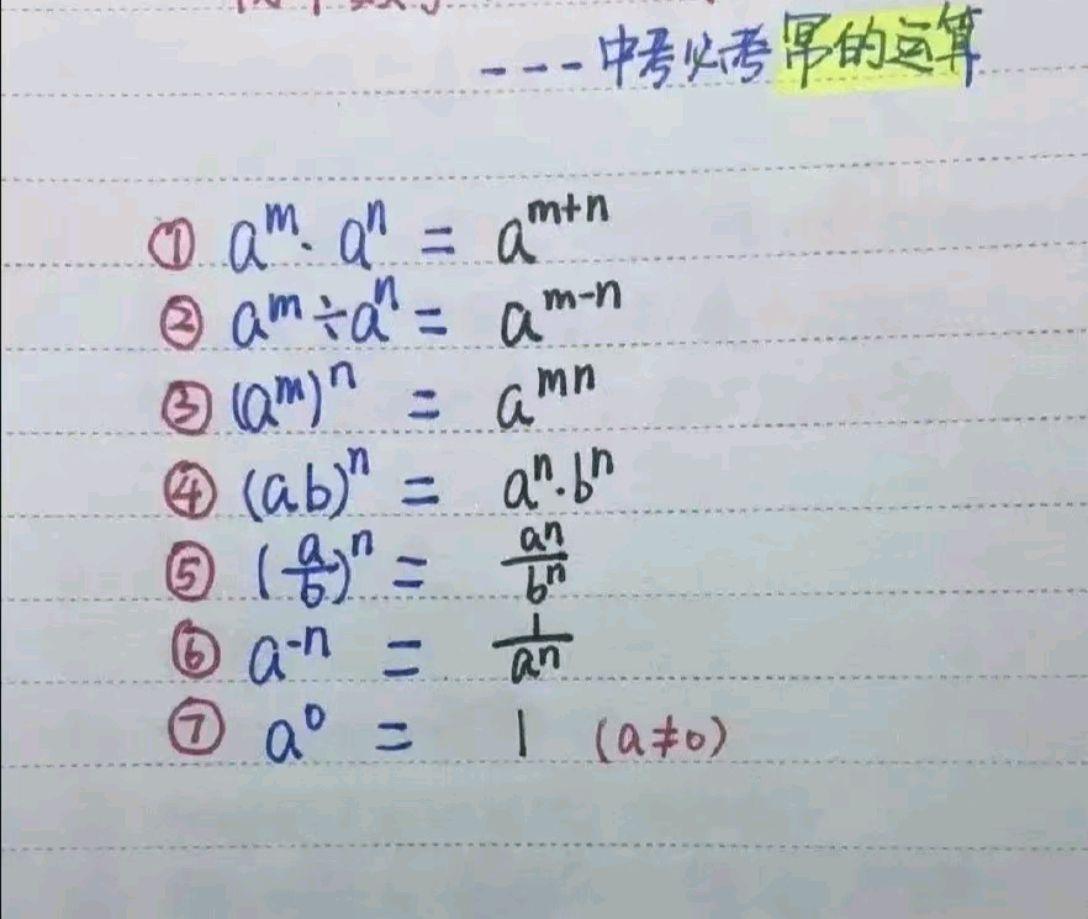 ---中考必考幂的运算
① aᵐ·aⁿ = aᵐ⁺ⁿ
② aᵐ÷aⁿ = aᵐ⁻ⁿ
③ (aᵐ)ⁿ = aᵐⁿ
④ (ab)ⁿ = aⁿ·bⁿ
⑤ (a/b)ⁿ = aⁿ/bⁿ
⑥ a⁻ⁿ = 1/aⁿ
⑦ a⁰ = 1 (a≠0)